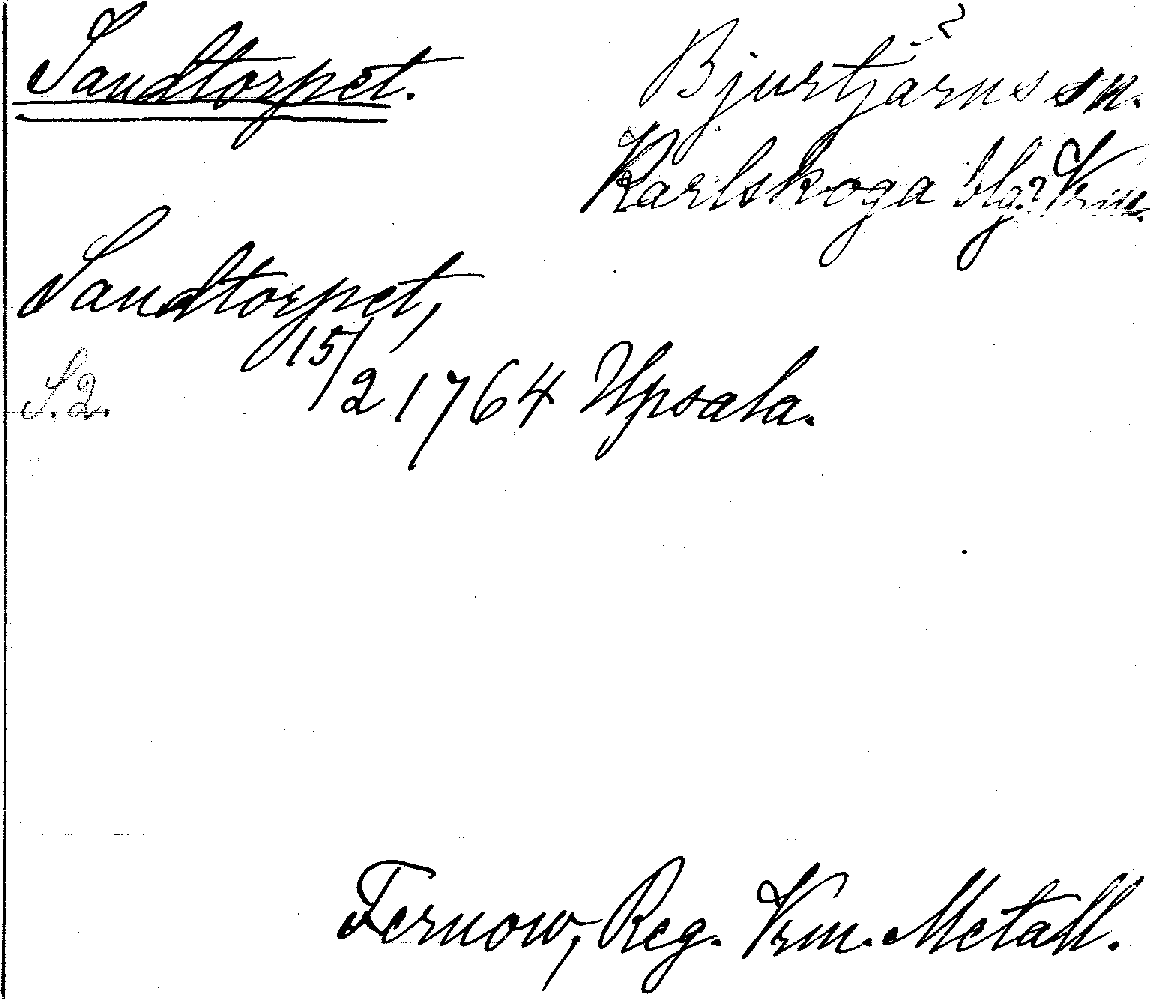 Sandtorpet.
Bjurtjärns sn.
Karlskoga blg? Vrm.
Sandtorpet,
15/2 1764 Upsala.
S. 2.
Fernow, Reg. Vrm. Metall.